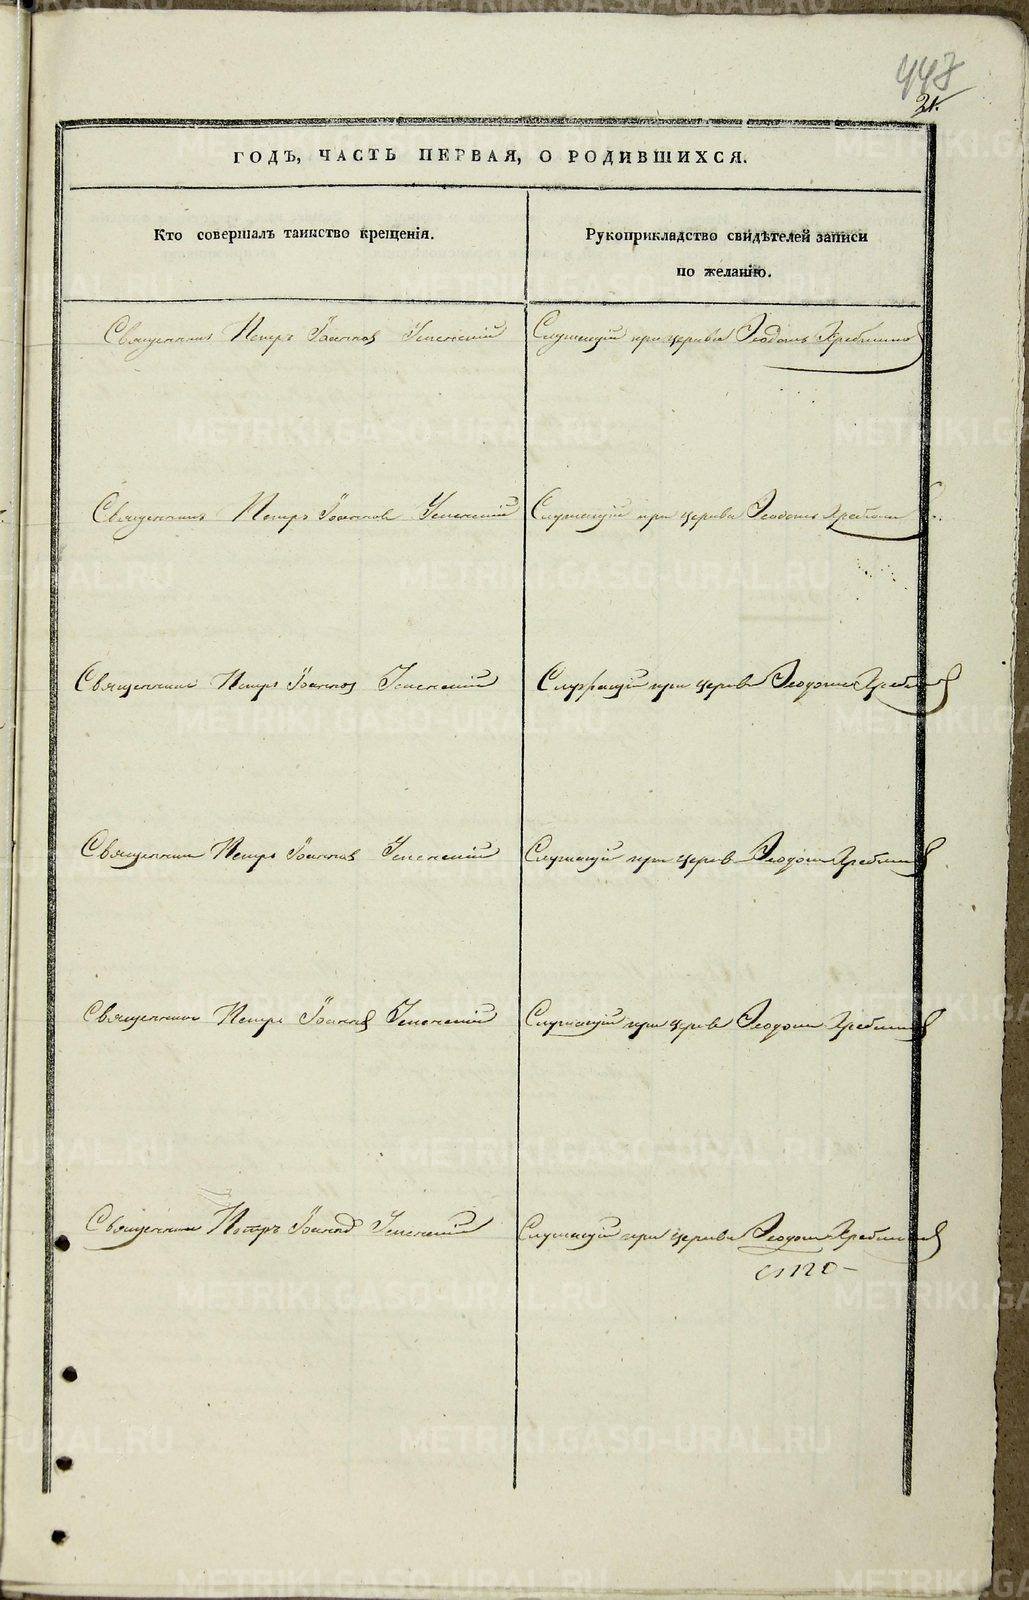 448
21.
ГОДЪ, ЧАСТЬ ПЕРВАЯ, О РОДИВШИХСЯ.
Кто совершалъ таинство крещенія.
Рукоприкладство свидѣтелей записи
по желанію.
Священникъ Петръ Іоанновъ Успенскій
Служащій при церкви Ѳедотъ
Священникъ Петръ Іоанновъ Успенскій
Служащій при церкви Ѳедотъ
Священникъ Петръ Іоанновъ Успенскій
Служащій при церкви Ѳедотъ
Священникъ Петръ Іоанновъ Успенскій
Служащій при церкви Ѳедотъ
Священникъ Петръ Іоанновъ Успенскій
Служащій при церкви Ѳедотъ
Священникъ Петръ Іоанновъ Успенскій
Служащій при церкви Ѳедотъ
METRIKI.GASO-URAL.RU